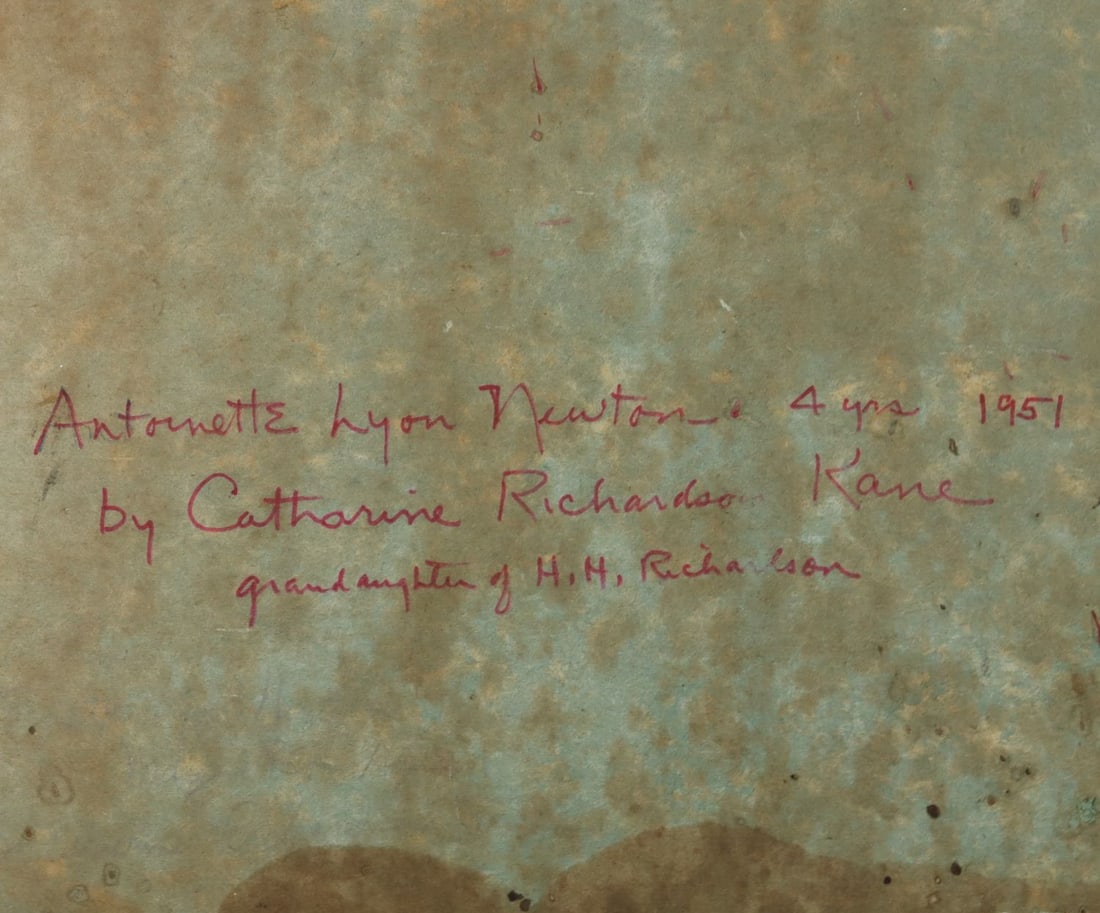 Antoinette Lyon Newton 4 yrs 1951
by Catharine Richardson Kane
grandaughter of H.H. Richardson